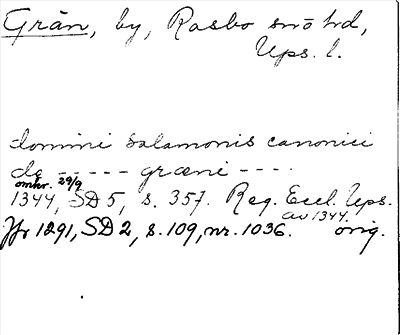 Grän, by, Rasbo sn o hd,
Ups. l.
domini Salamonis canonici
de ----- græni ----
omkr. 29/9
1344, SD 5, s. 357. Reg. Eccl. Ups.
av 1344.
Jfr 1291, SD 2, s. 109, nr. 1036. orig.